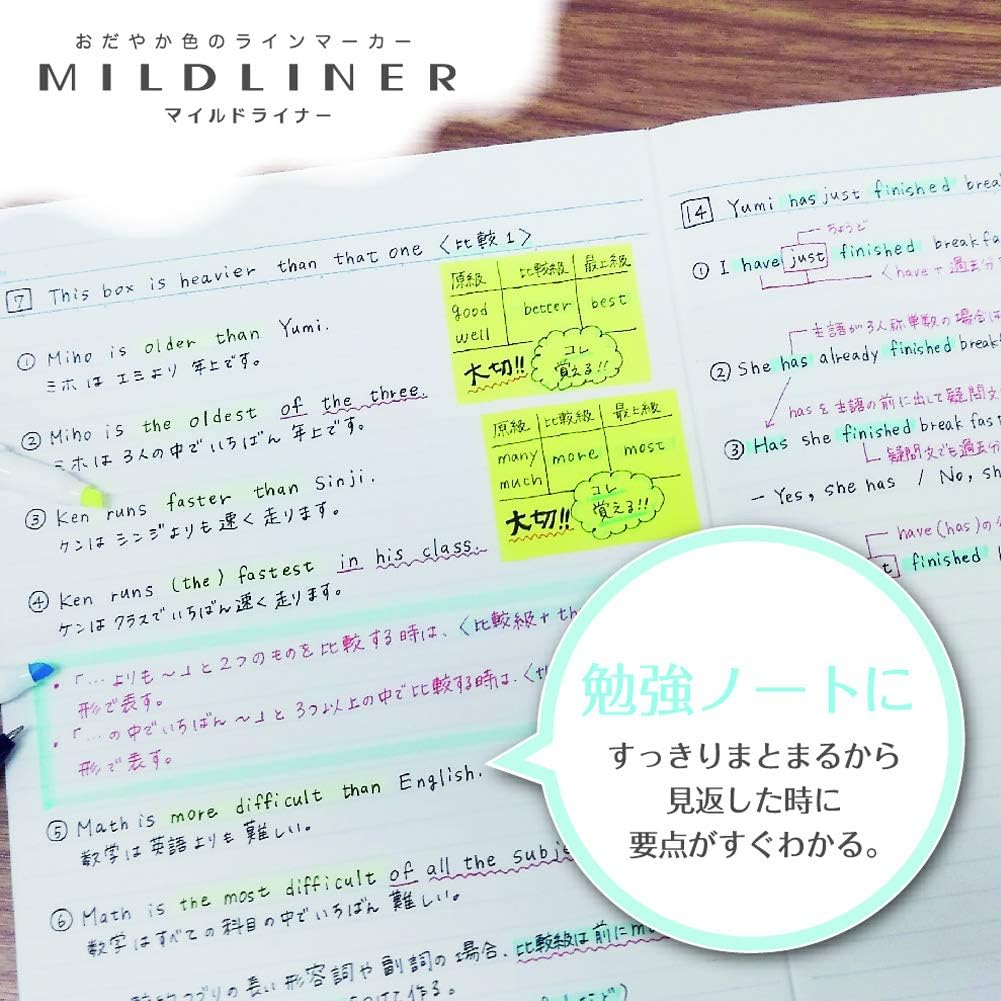 おだやか色のラインマーカー
MILDLINER
マイルドライナー
7 This box is heavier than that one 〈比較1〉
① Miho is older than Yumi.
ミホは エミより 年上です。
② Miho is the oldest of the three.
ミホは 3人の中でいちばん 年上です。
③ Ken runs faster than Sinji.
ケンは シンジよりも 速く 走ります。
④ Ken runs (the) fastest in his class.
ケンは クラスでいちばん 速く 走ります。
・「…よりも〜」と2つのものを比較する時は、〈比較級+th
形で表す。
・「…の中でいちばん〜」と3つ以上の中で比較する時は、〈th
形で表す。
⑤ Math is more difficult than English.
数学は 英語よりも 難しい。
⑥ Math is the most difficult of all the subje
数学はすべての科目の中でいちばん 難しい。
の長い形容詞や副詞の場合、比較級は前にm
つけて作る。
原級 比較級 最上級
good better best
well
大切!! コレ
覚える!!
原級 比較級 最上級
many more most
much
大切!! コレ
覚える!!
14 Yumi has just finished brea
ちょうど
① I have just finished breakfa
〈have+過去分
主語が3人称単数の場合は
② She has already finished break
hasを主語の前に出して疑問文
③ Has she finished breakfast
疑問文でも過去分
− Yes, she has / No, sh
have(has)の
finished
勉強ノートに
すっきりまとまるから
見返した時に
要点がすぐわかる。